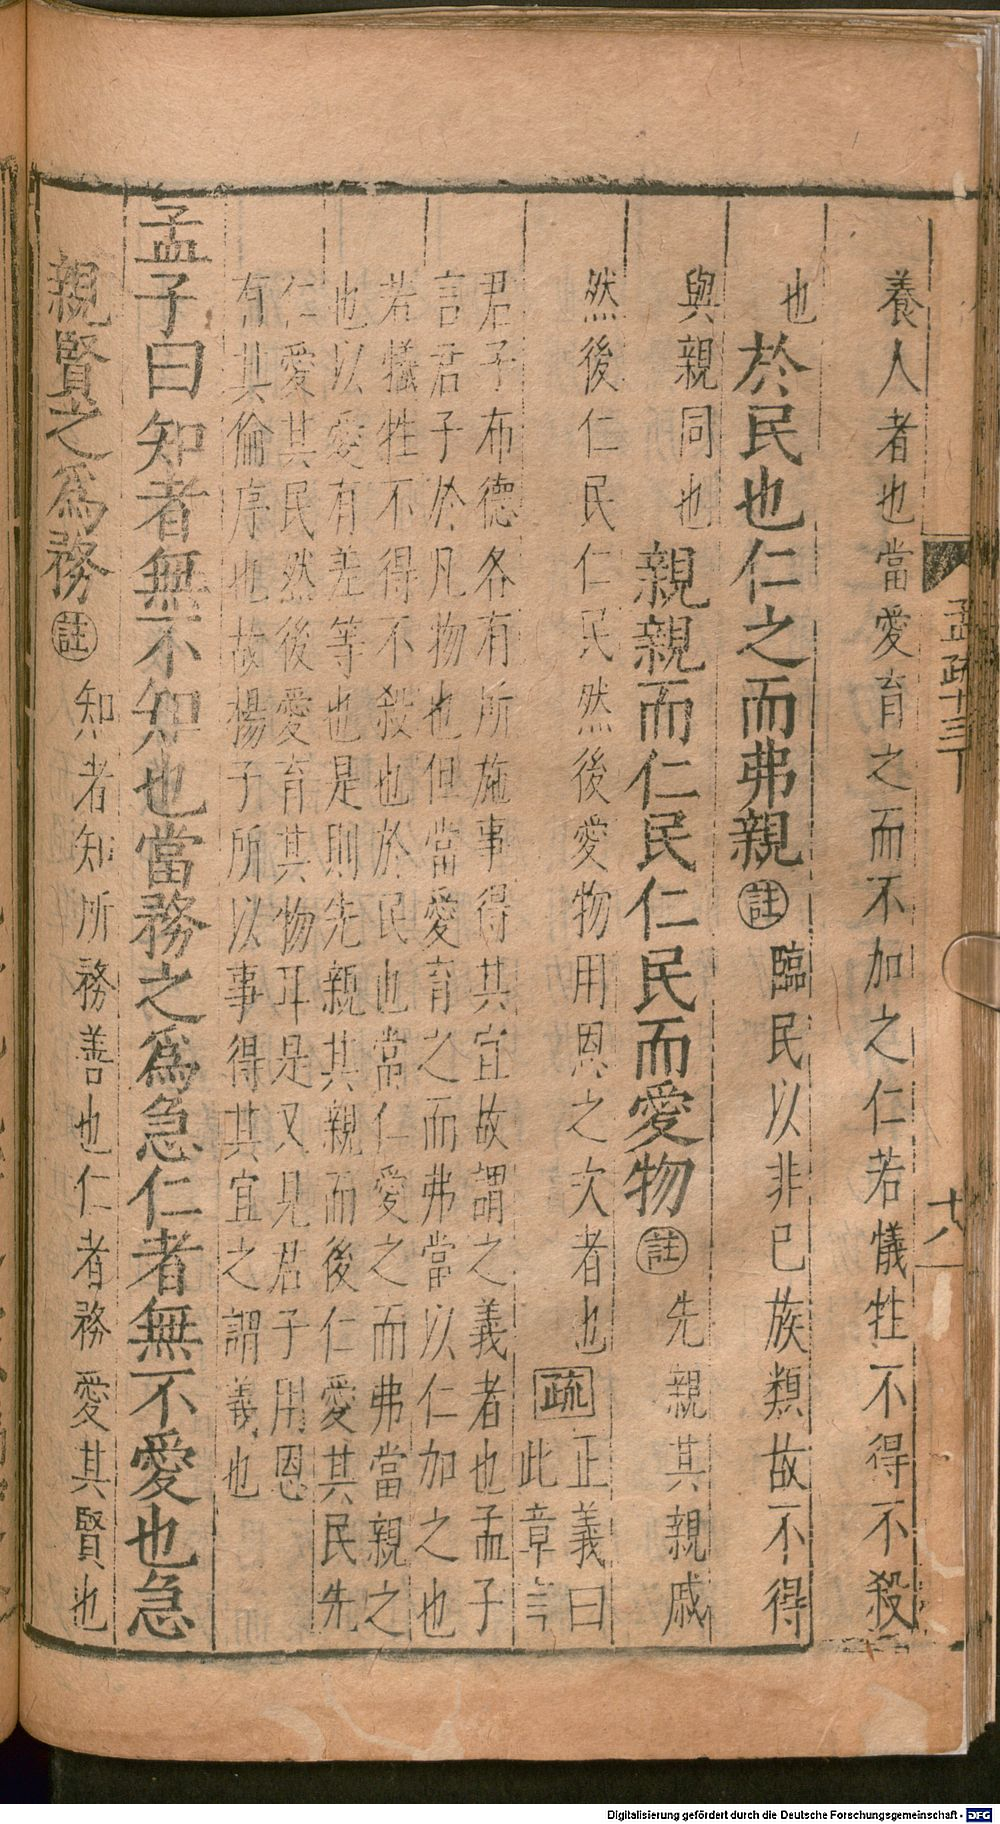 養人者也當愛育之而不加之仁若犧牲不得不殺
也於民也仁之而弗親註臨民以非已族類故不得
與親同也親親而仁民仁民而愛物註先親其親戚
然後仁民仁民然後愛物用恩之次者也疏正義曰
此章言
君子布德各有所施事得其宜故謂之義者也孟子
言君子於凡物也但當愛育之而弗當以仁加之也
若犧牲不得不殺也於民也當仁愛之而弗當親之
也以愛有差等也是則先親其親而後仁愛其民先
仁愛其民然後愛育其物耳是又見君子用恩
有其倫序也故揚子所以事得其宜之謂義也
孟子曰知者無不知也當務之為急仁者無不愛也急
親賢之為務註知者知所務善也仁者務愛其賢也
孟疏十三下
十八
Digitalisierung gefördert durch die Deutsche Forschungsgemeinschaft - DFG